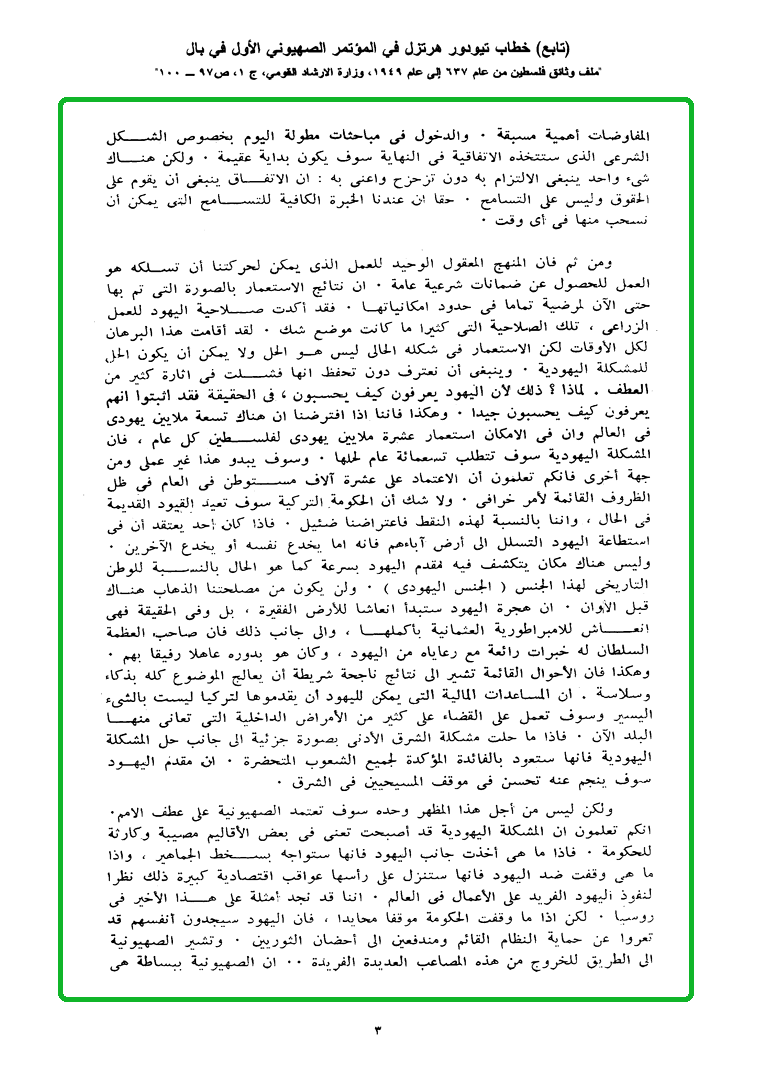 (تابع) خطاب تيودور هرتزل في المؤتمر الصهيوني الأول في بال
"ملف وثائق فلسطين من عام ٦٣٧ إلى عام ١٩٤٩، وزارة الارشاد القومي، ج ١، ص٩٧ ــ ١٠٠"
المفاوضات أهمية مسبقة ٠ والدخول فى مباحثات مطولة اليوم بخصوص الشــكل
الشرعى الذى ستتخذه الاتفاقية فى النهاية سوف يكون بداية عقيمة ٠ ولكن هنــاك
شىء واحد ينبغى الالتزام به دون تزحزح واعنى به : ان الاتفــاق ينبغى أن يقوم على
الحقوق وليس على التسامح ٠ حقا ان عندنا الخبرة الكافية للتســامح التى يمكن أن
نسحب منها فى أى وقت ٠
ومن ثم فان المنهج المعقول الوحيد للعمل الذى يمكن لحركتنا أن تســلكه هو
العمل للحصول عن ضمانات شرعية عامة ٠ ان نتائج الاستعمار بالصورة التى تم بها
حتى الآن لمرضية تماما فى حدود امكانياتهــا ٠ فقد أكدت صــلاحية اليهود للعمل
الزراعى ، تلك الصلاحية التى كثيرا ما كانت موضع شك ٠ لقد أقامت هذا البرهان
لكل الأوقات لكن الاستعمار فى شكله الحالى ليس هــو الحل ولا يمكن أن يكون الحل
للمشكلة اليهودية ٠ وينبغى أن نعترف دون تحفظ انها فشــلت فى اثارة كثير من
العطف . لماذا ؟ ذلك لأن اليهود يعرفون كيف يحسبون ، فى الحقيقة فقد اثبتوا انهم
يعرفون كيف يحسبون جيدا ٠ وهكذا فاننا اذا افترضنا ان هناك تسعة ملايين يهودى
فى العالم وان فى الامكان استعمار عشرة ملايين يهودى لفلســطين كل عام ، فان
المشكلة اليهودية سوف تتطلب تسعمائة عام لحلها ٠ وسوف يبدو هذا غير عملى ومن
جهة أخرى فانكم تعلمون أن الاعتماد على عشرة آلاف مســتوطن فى العام فى ظل
الظروف القائمة لأمر خرافى ٠ ولا شك أن الحكومة التركية سوف تعيد القيود القديمة
فى الحال ، واننا بالنسبة لهذه النقط فاعتراضنا ضئيل ٠ فاذا كان أحد يعتقد أن فى
استطاعة اليهود التسلل الى أرض آباءهم فانه اما يخدع نفسه أو يخدع الآخرين ٠
وليس هناك مكان يتكشف فيه مقدم اليهود بسرعة كما هو الحال بالنســبة للوطن
التاريخى لهذا الجنس ( الجنس اليهودى ) ٠ ولن يكون من مصلحتنا الذهاب هنــاك
قبل الأوان ٠ ان هجرة اليهود ستبدأ انعاشا للأرض الفقيرة ، بل وفى الحقيقة فهى
انعــاش للامبراطورية العثمانية بأكملهــا ، والى جانب ذلك فان صاحب العظمة
السلطان له خبرات رائعة مع رعاياه من اليهود ، وكان هو بدوره عاهلا رفيقا بهم ٠
وهكذا فان الأحوال القائمة تشير الى نتائج ناجحة شريطة أن يعالج الموضوع كله بذكاء
وسلاسة . ان المساعدات المالية التى يمكن لليهود أن يقدموها لتركيا ليست بالشىء
اليسير وسوف تعمل على القضاء على كثير من الأمراض الداخلية التى تعانى منهــا
البلد الآن ٠ فاذا ما حلت مشكلة الشرق الأدنى بصورة جزئية الى جانب حل المشكلة
اليهودية فانها ستعود بالفائدة المؤكدة لجميع الشعوب المتحضرة ٠ ان مقدم اليهــود
سوف ينجم عنه تحسن فى موقف المسيحيين فى الشرق ٠
ولكن ليس من أجل هذا المظهر وحده سوف تعتمد الصهيونية على عطف الامم٠
انكم تعلمون ان المشكلة اليهودية قد أصبحت تعنى فى بعض الأقاليم مصيبة وكارثة
للحكومة ٠ فاذا ما هى أخذت جانب اليهود فانها ستواجه بســخط الجماهير ، واذا
ما هى وقفت ضد اليهود فانها ستنزل على رأسها عواقب اقتصادية كبيرة ذلك نظرا
لنفوذ اليهود الفريد على الأعمال فى العالم ٠ اننا قد نجد أمثلة على هــذا الأخير فى
روسيا ٠ لكن اذا ما وقفت الحكومة موقفا محايدا ، فان اليهود سيجدون أنفسهم قد
تعروا عن حماية النظام القائم ومندفعين الى أحضان الثوريين ٠ وتشير الصهيونية
الى الطريق للخروج من هذه المصاعب العديدة الفريدة ٠٠ ان الصهيونية ببساطة هى
٣